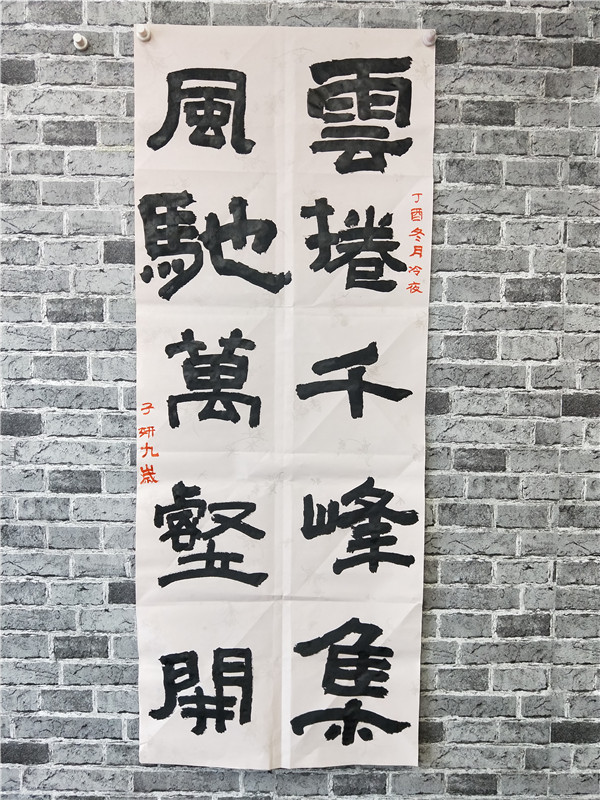 雲捲千峰集
丁酉冬月冷夜
風馳萬壑開
子研九歲